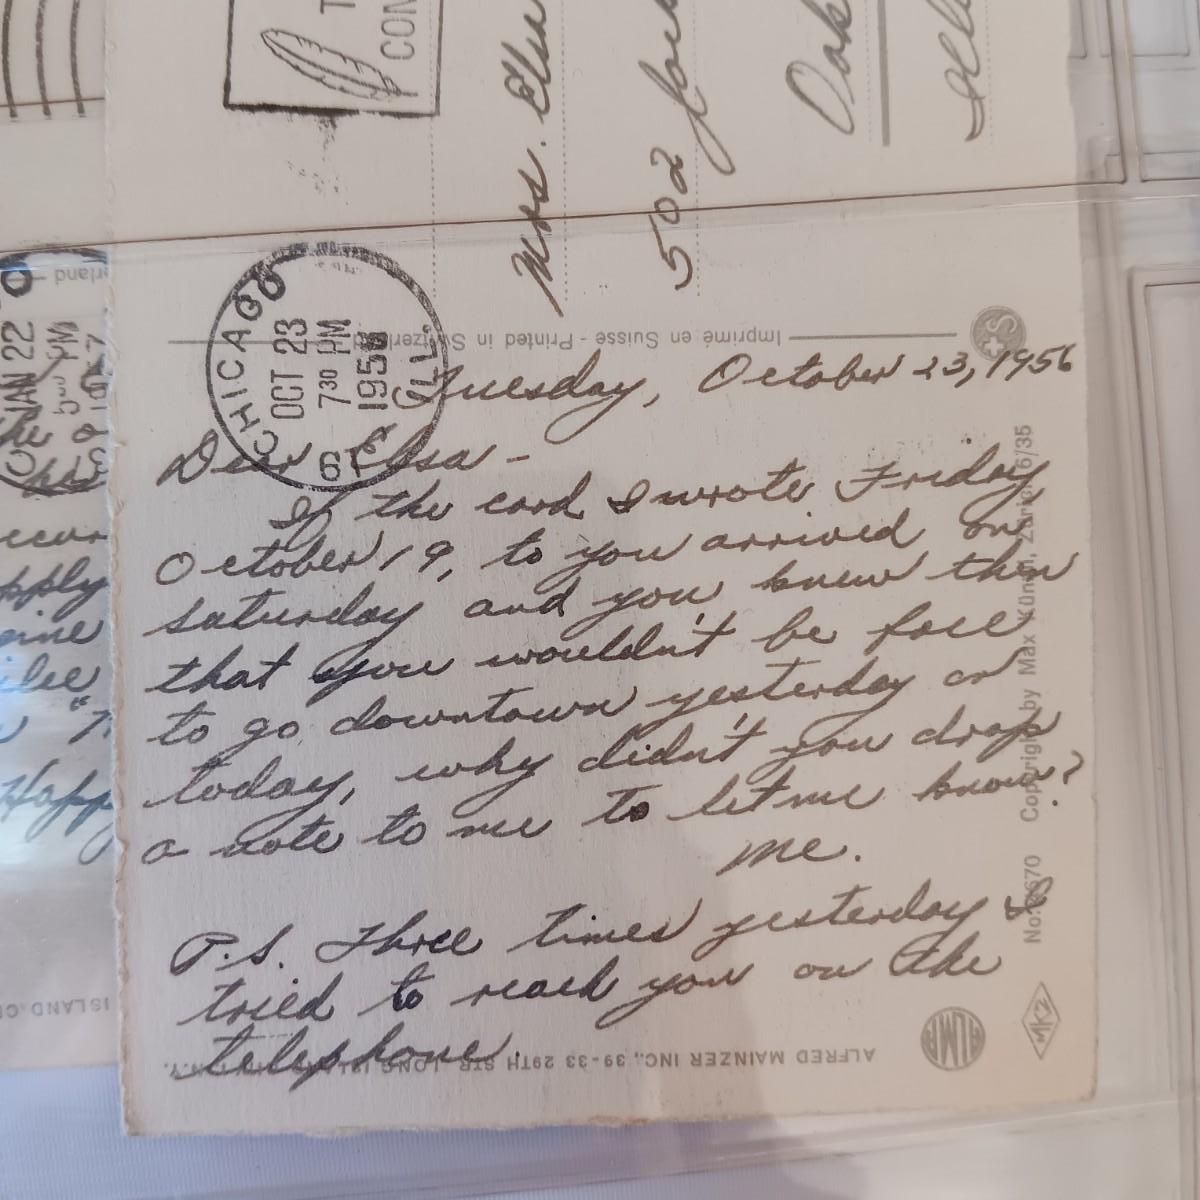 T
CON
Mrs. Elsa
502
Oak
Ill
CHICAGO
OCT 23
7 30 PM
1956
ILL.
61
JAN 22
PM
erland
Imprimé en Suisse - Printed in Switzerland
Tuesday, October 23, 1956
Dear Elsa -
If the card I wrote Friday
October 19, to you arrived on
saturday and you knew then
that you wouldn't be free
to go downtown yesterday or
today, why didn't you drop
a note to me to let me know?
me.
P.S. Three times yesterday I
tried to reach you on the
telephone.
No. Copyright by Max Künzli, Zürich 6/35
MK2
ALFRED MAINZER INC., 39-33 29TH STR. LONG ISLAND CITY, N.Y.
the
his
pply
Happ
ISLAND C